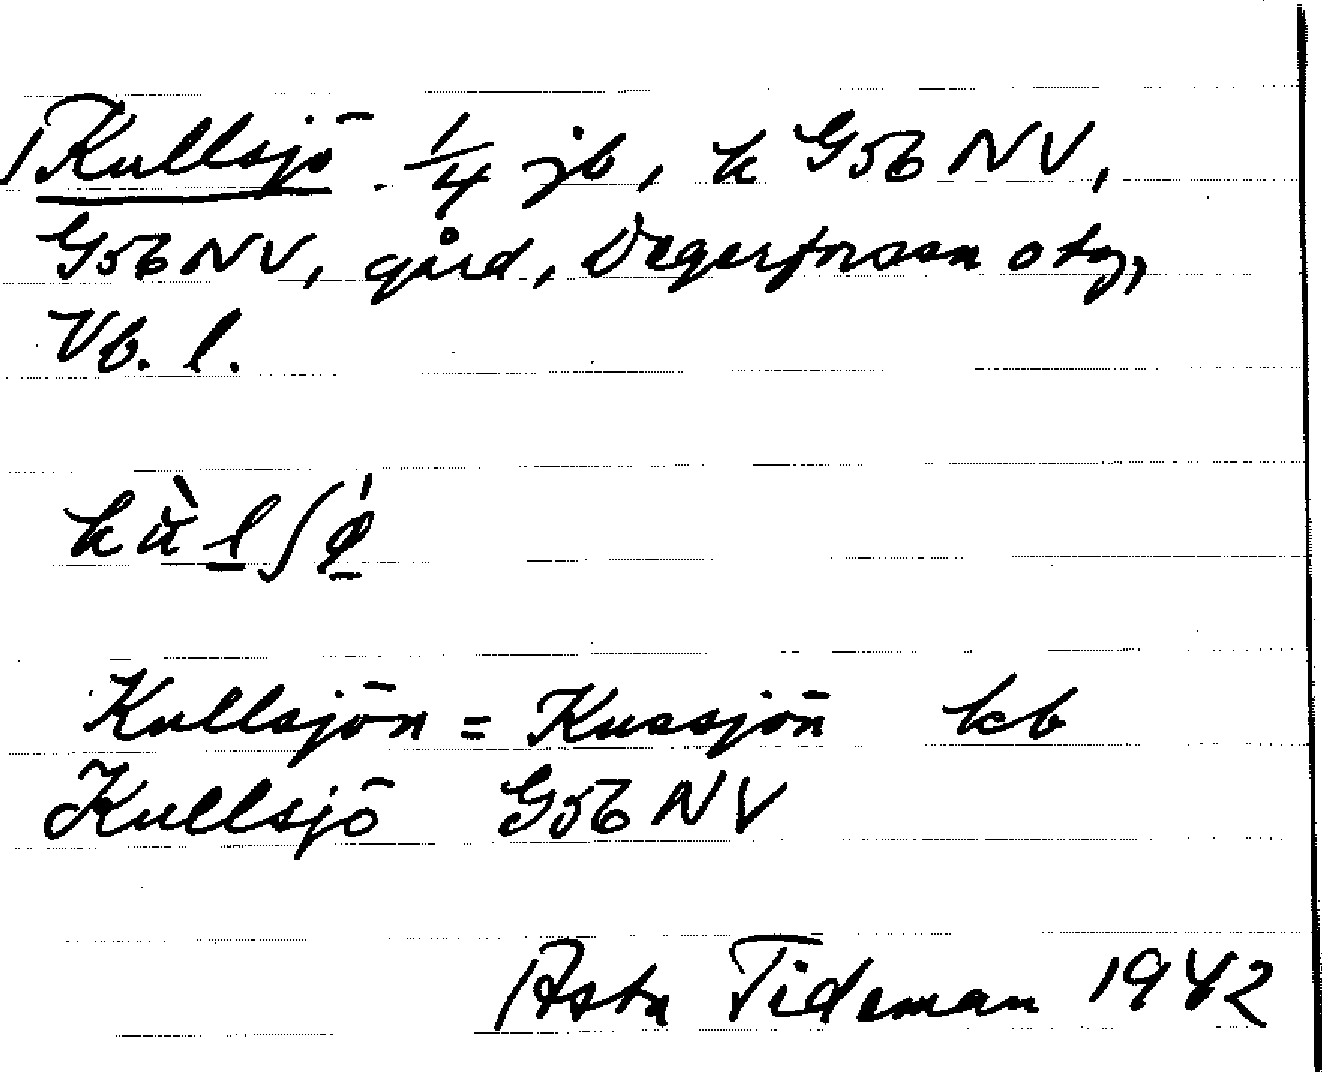 Kullsjö 1/4 jb, k G56NV,
G56NV, gård, Degerforssn otg,
Vb. l.
kùlʃø̀
Kullsjön = Kussjön kb
Kullsjö G56NV
Asta Tideman 1942